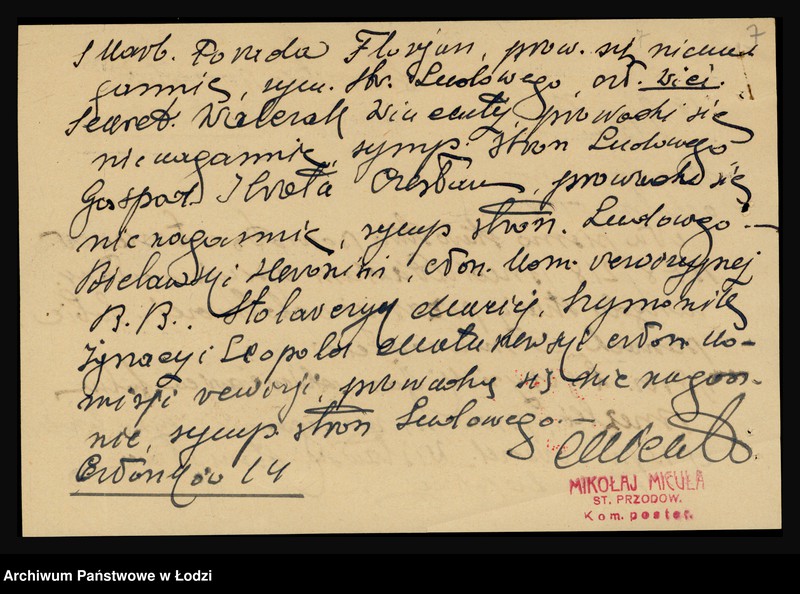 7
Skarb. Porada Florjan, prow. się niena
gannie, sym. Str. Ludowego, czł. Wici.
Sekret. Walczak Wincenty, prowadzi się
nienagannie, symp. Stron Ludowego
Gospod. Czesław, prowadzi się
nienagannie, symp stron. Ludowego –
Bielawski Hieronim, człon. Kom. rewizyjnej
B.B., Marcin, Szymaniak
Ignacy i Leopold człon Ko-
misji rewizji, prowadzą się nienagan-
nie, symp. stron Ludowego.
Członków 14
MIKOŁAJ MICUŁA
ST. PRZODOW.
Kom. poster.
Archiwum Państwowe w Łodzi